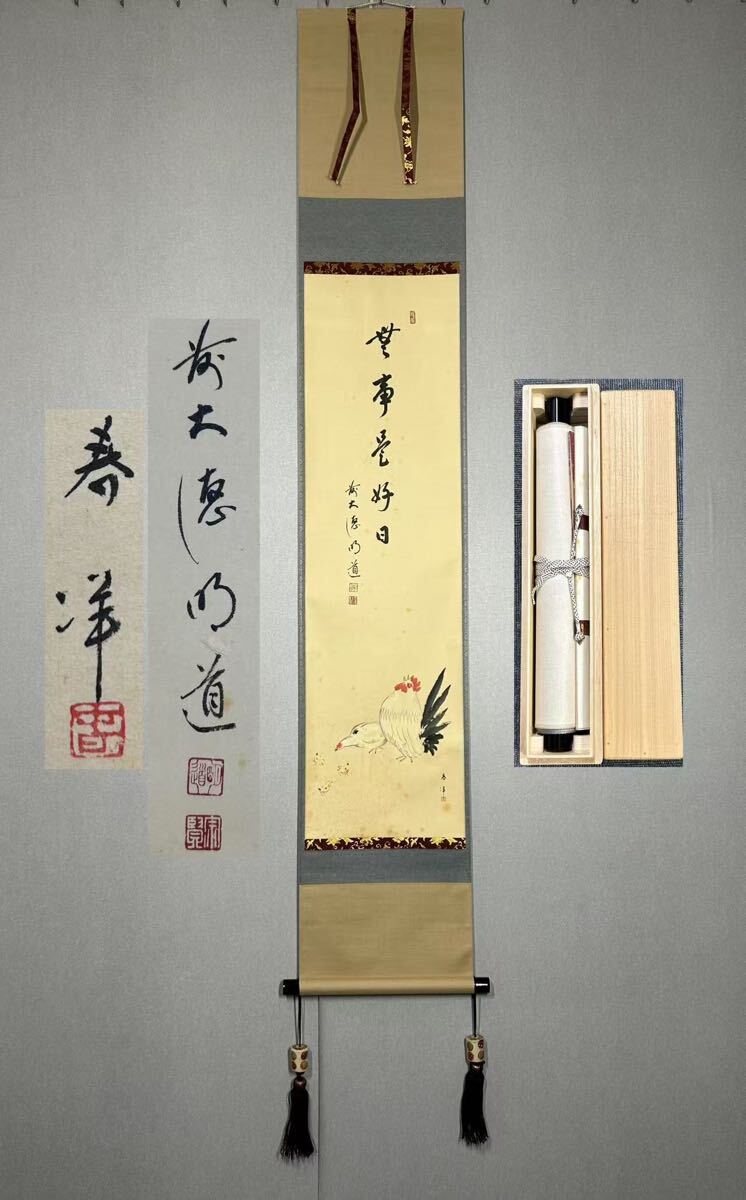 無事是好日
前大徳明道
春洋
前大徳明道
明道
春洋